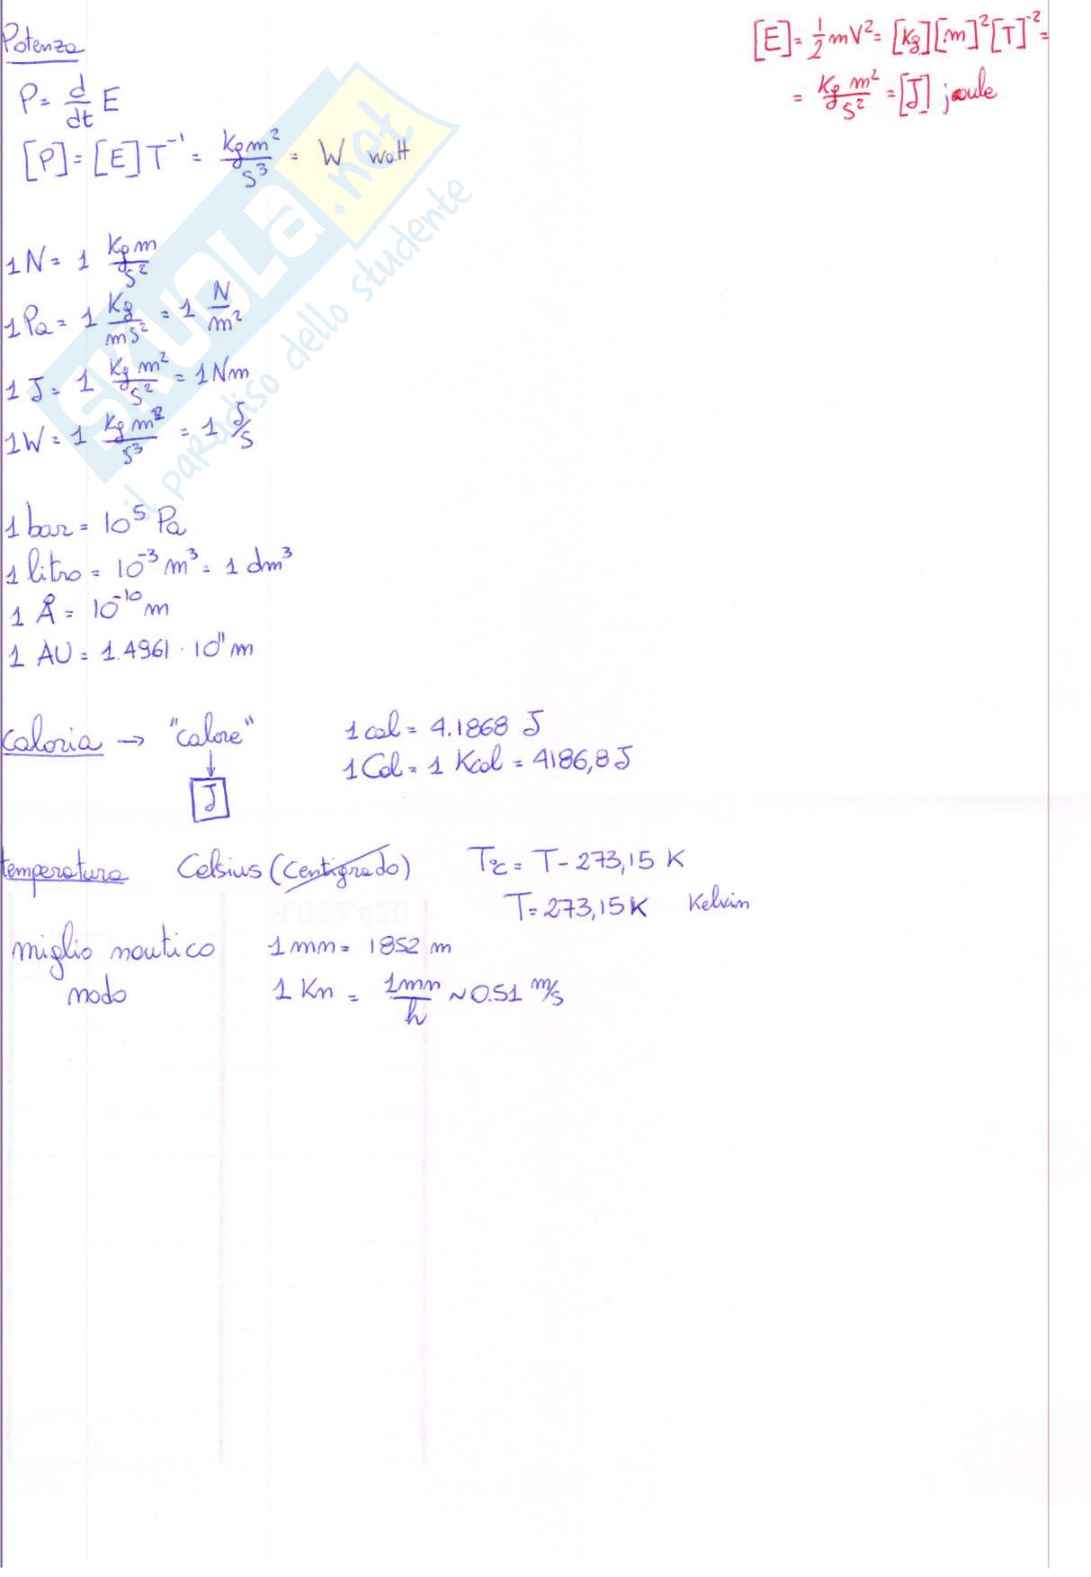 Potenza
P = d/dt E
[P] = [E] T⁻¹ = Kg m²/s³ = W watt
[E] = 1/2 m V² = [Kg][m]²[T]⁻² =
= Kg m²/s² = [J] joule
1 N = 1 Kg m/s²
1 Pa = 1 Kg/ms² = 1 N/m²
1 J = 1 Kg m²/s² = 1 Nm
1 W = 1 Kg m²/s³ = 1 J/s
1 bar = 10⁵ Pa
1 litro = 10⁻³ m³ = 1 dm³
1 Å = 10⁻¹⁰ m
1 AU = 1.4961 · 10¹¹ m
caloria → "calore" 1 cal = 4.1868 J
↓ 1 Cal = 1 Kcal = 4186,8 J
J
temperatura Celsius (Centigrado) T°C = T - 273,15 K
T = 273,15 K Kelvin
miglio nautico 1 mn = 1852 m
nodo 1 Kn = 1mn/h ~ 0.51 m/s
SKUOLA.net
il paradiso dello studente